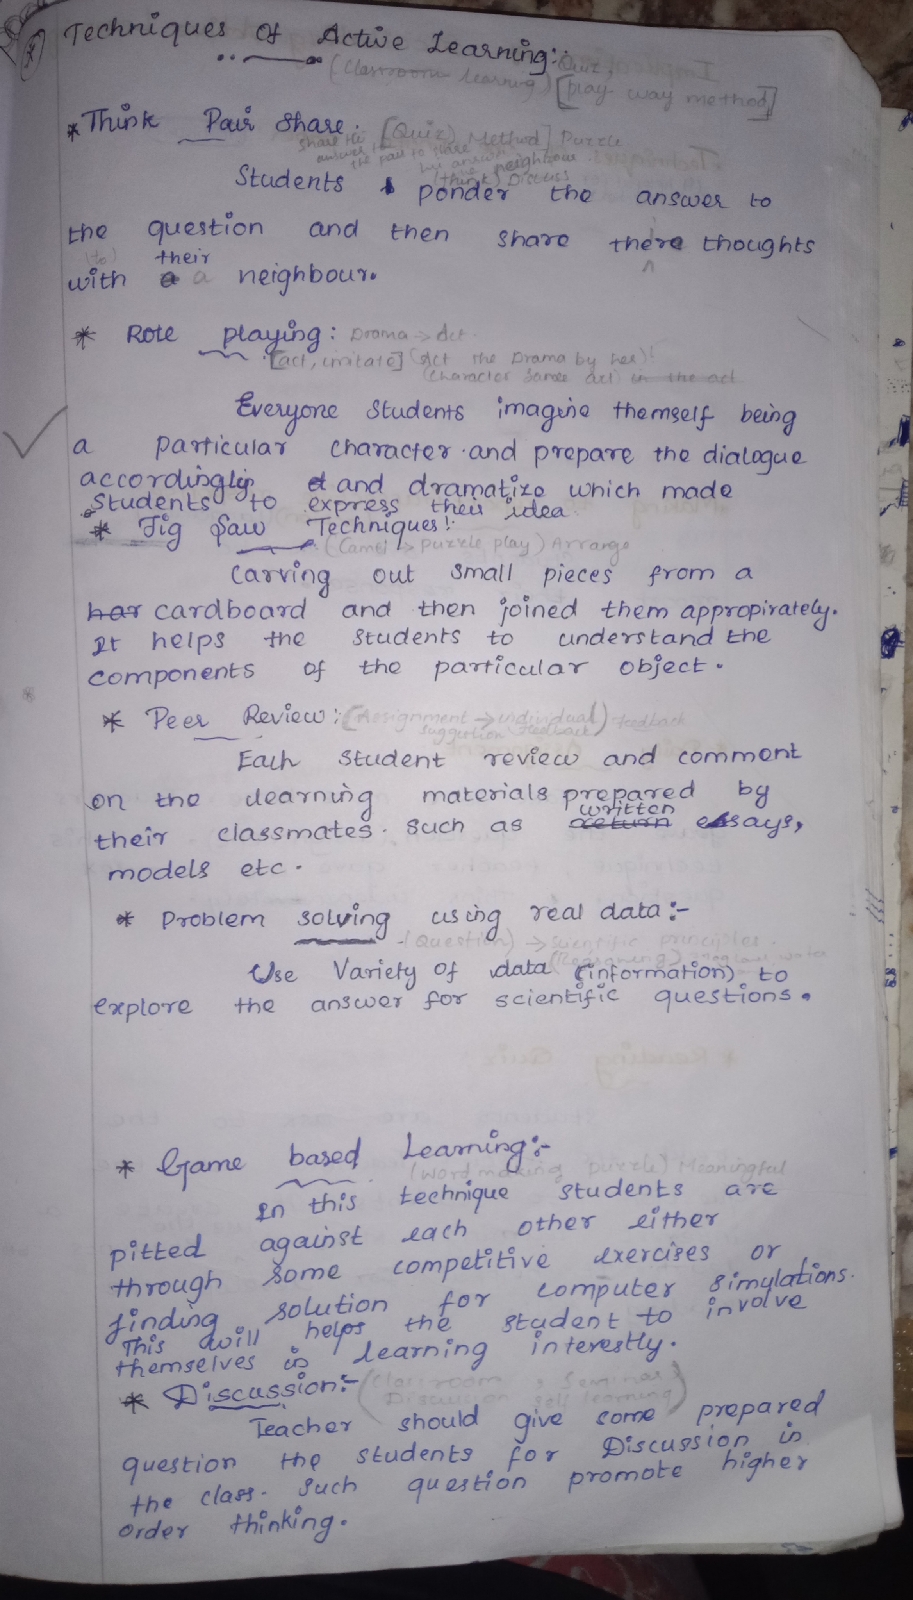 Techniques Of Active Learning:-
(Classroom learning) Quiz, [play-way method]
* Think Pair Share:
[Quiz) Method] Puzzle
neighbour
(think) Discuss
Students ponder the answer to
the question and then share there thoughts
(to) their
with a a neighbour.
* Role playing: Drama → Act.
[act, imitate] (Act the Drama by her)!
(Character same act) in the act
Everyone Students imagine themself being
a particular character and prepare the dialogue
accordingly and dramatize which made
Students to express their idea.
* Jig Saw Techniques!:
puzzle play) Arrange
Carving out small pieces from a
har cardboard and then joined them appropirately.
It helps the Students to understand the
components of the particular object.
* Peer Review: (Assignment → individual) feedback
suggestion (feedback)
Each Student review and comment
on the learning materials prepared by
written
their classmates. such as return essays,
models etc.
* Problem solving using real data:-
(Question) → Scientific principles.
Use Variety of data (information) to
explore the answer for scientific questions.
* Game based Learning:-
(word making puzzle) Meaningful
In this technique students are
pitted against each other either
through some competitive exercises or
finding solution for computer simulations.
This will helps the student to involve
themselves in learning interestly.
* Discussion:- (Classroom, Seminar
Discussion self learning)
Teacher should give some prepared
question the students for Discussion in
the class. Such question promote higher
order thinking.